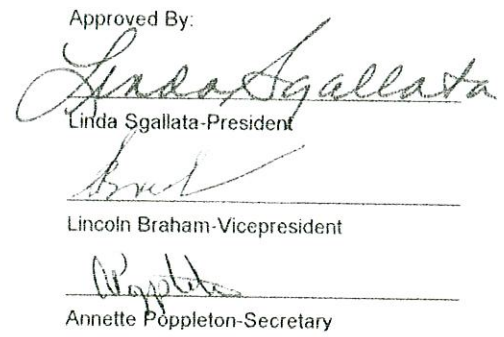 Approved By:
Linda Sgallata
Linda Sgallata-President
Lincoln Braham-Vicepresident
APoppleton
Annette Poppleton-Secretary